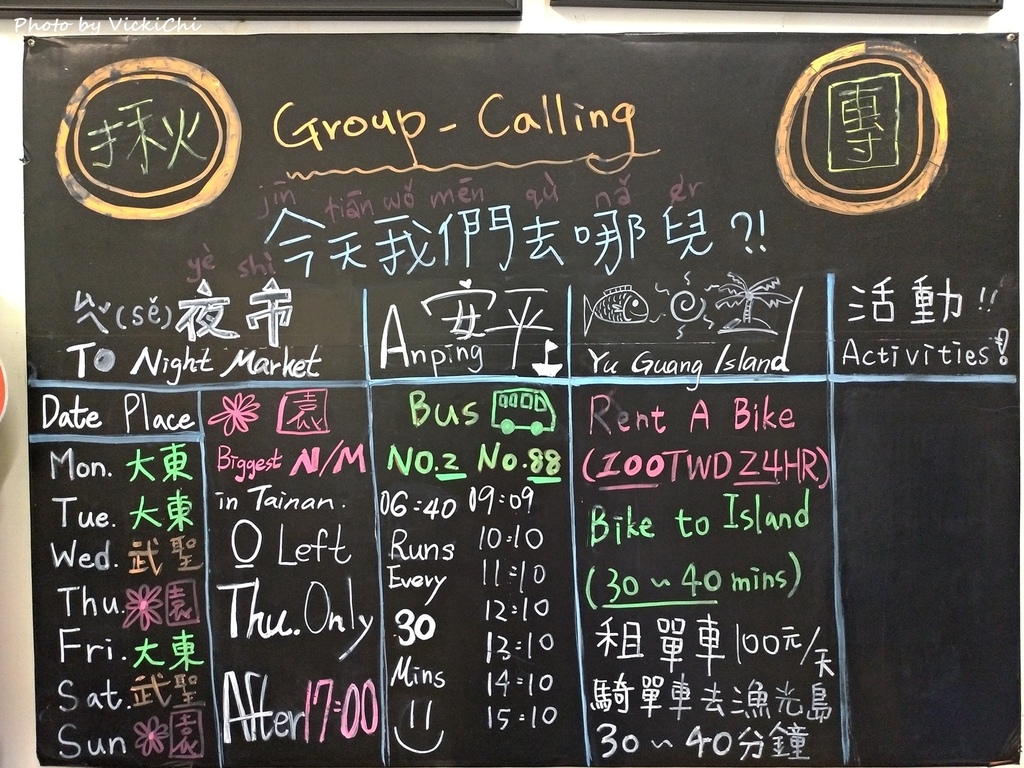 Photo by VickiChi
揪
Group-Calling
團
jīn tiān wǒ mén qù nǎ ér
今天我們去哪兒?!
yè shì
ㄙㄜˋ(sě)夜市
TO Night Market
Date Place
Mon. 大東
Tue. 大東
Wed. 武聖
Thu. 園
Fri. 大東
Sat. 武聖
Sun 園
園
Biggest N/M
in Tainan.
O Left
Thu. Only
After 17:00
安平
Anping
Bus
NO.2 No.88
06:40
Runs
Every
30
Mins
09:09
10:10
11:10
12:10
13:10
14:10
15:10
Yu Guang Island
Rent A Bike
(100TWD 24HR)
Bike to Island
(30~40 mins)
租單車100元/天
騎單車去漁光島
30~40分鐘
活動!!
Activities!